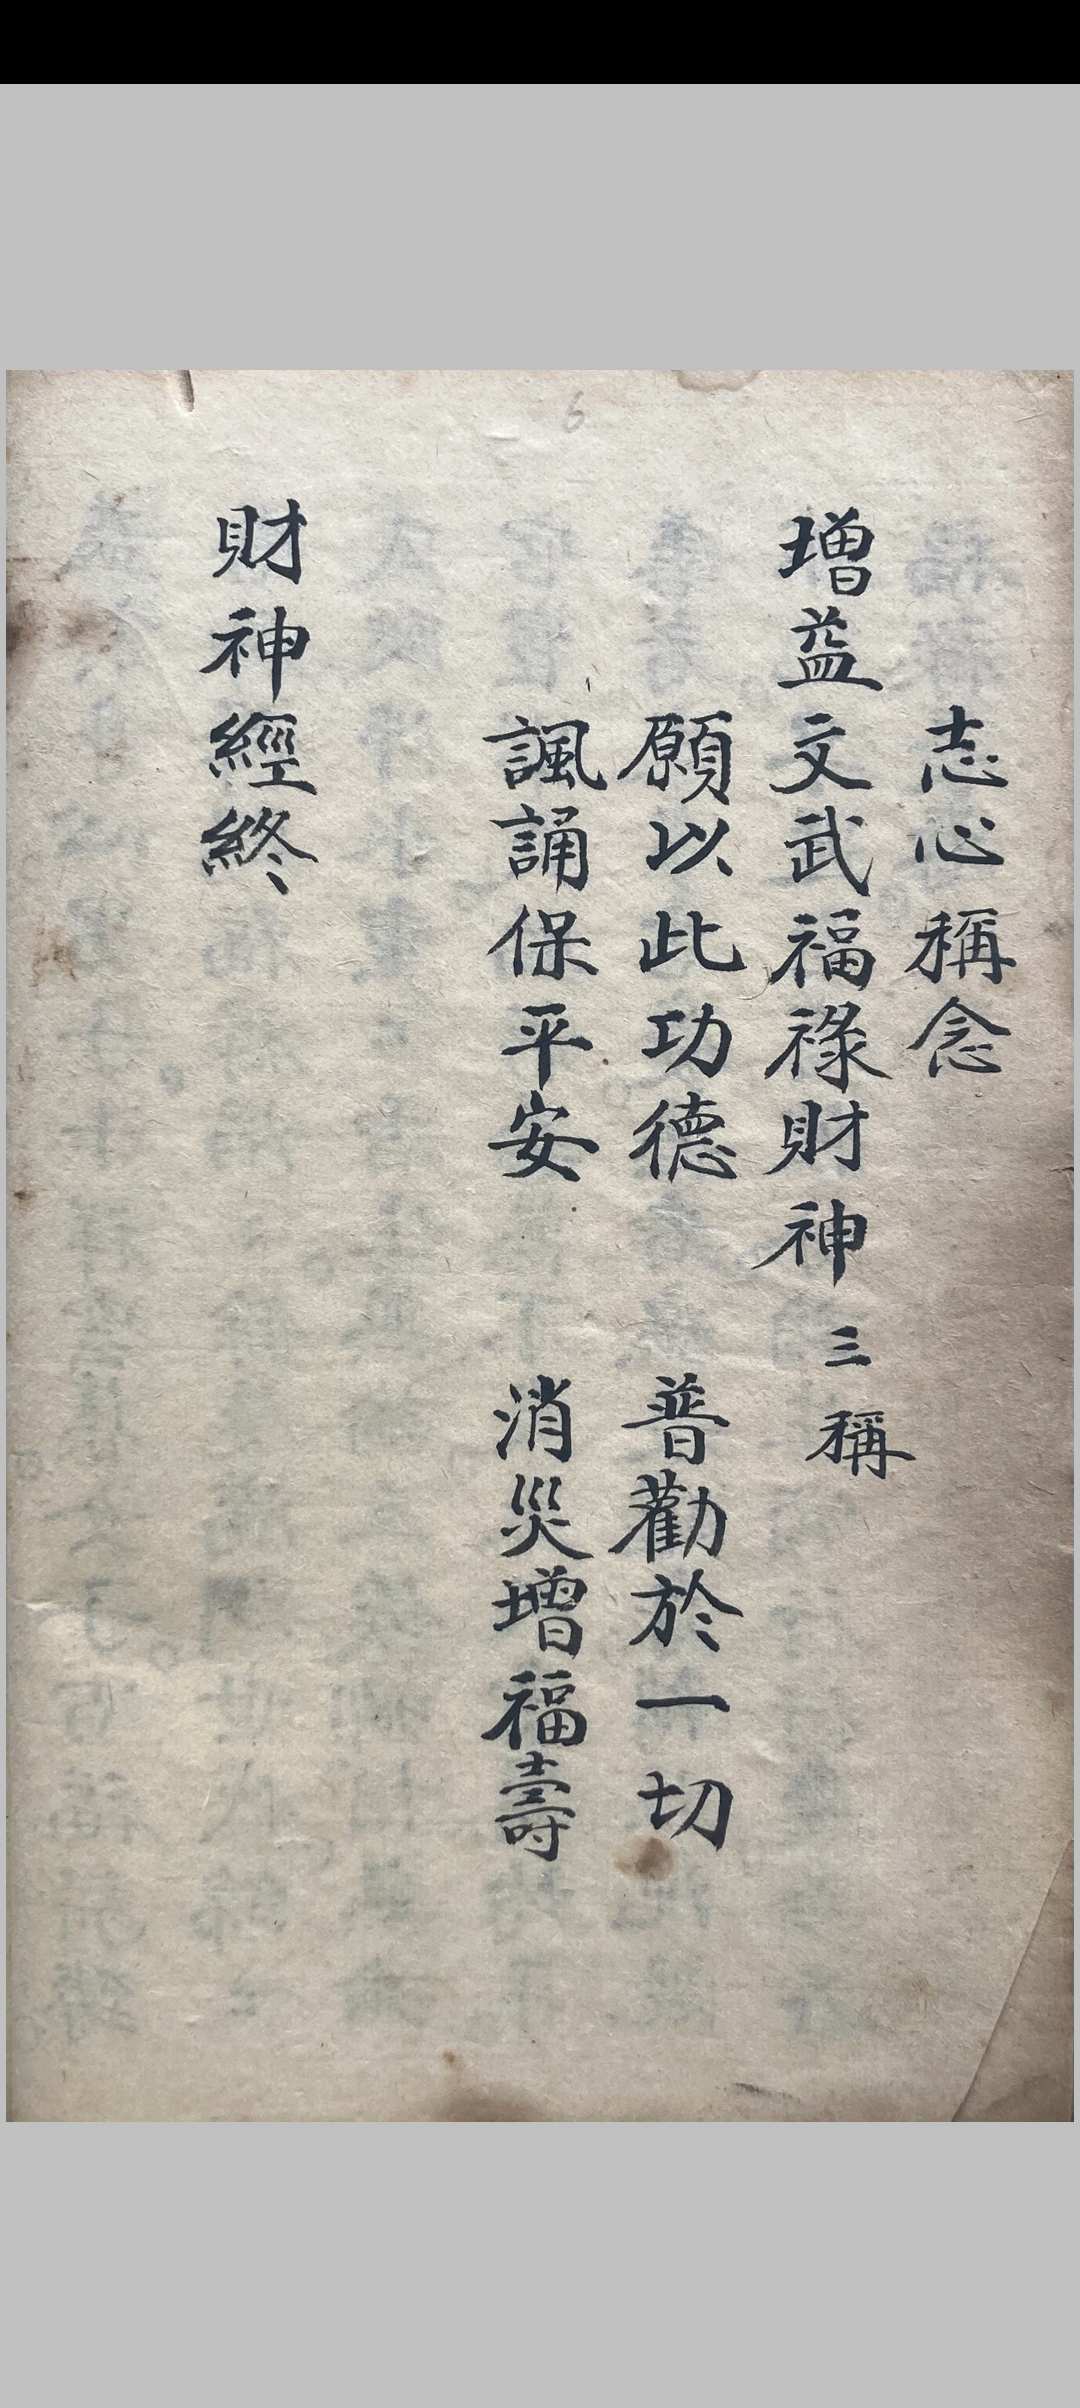 志心稱念
增益文武福祿財神三稱
願以此功德 普勸於一切
諷誦保平安 消災增福壽
財神經終
6